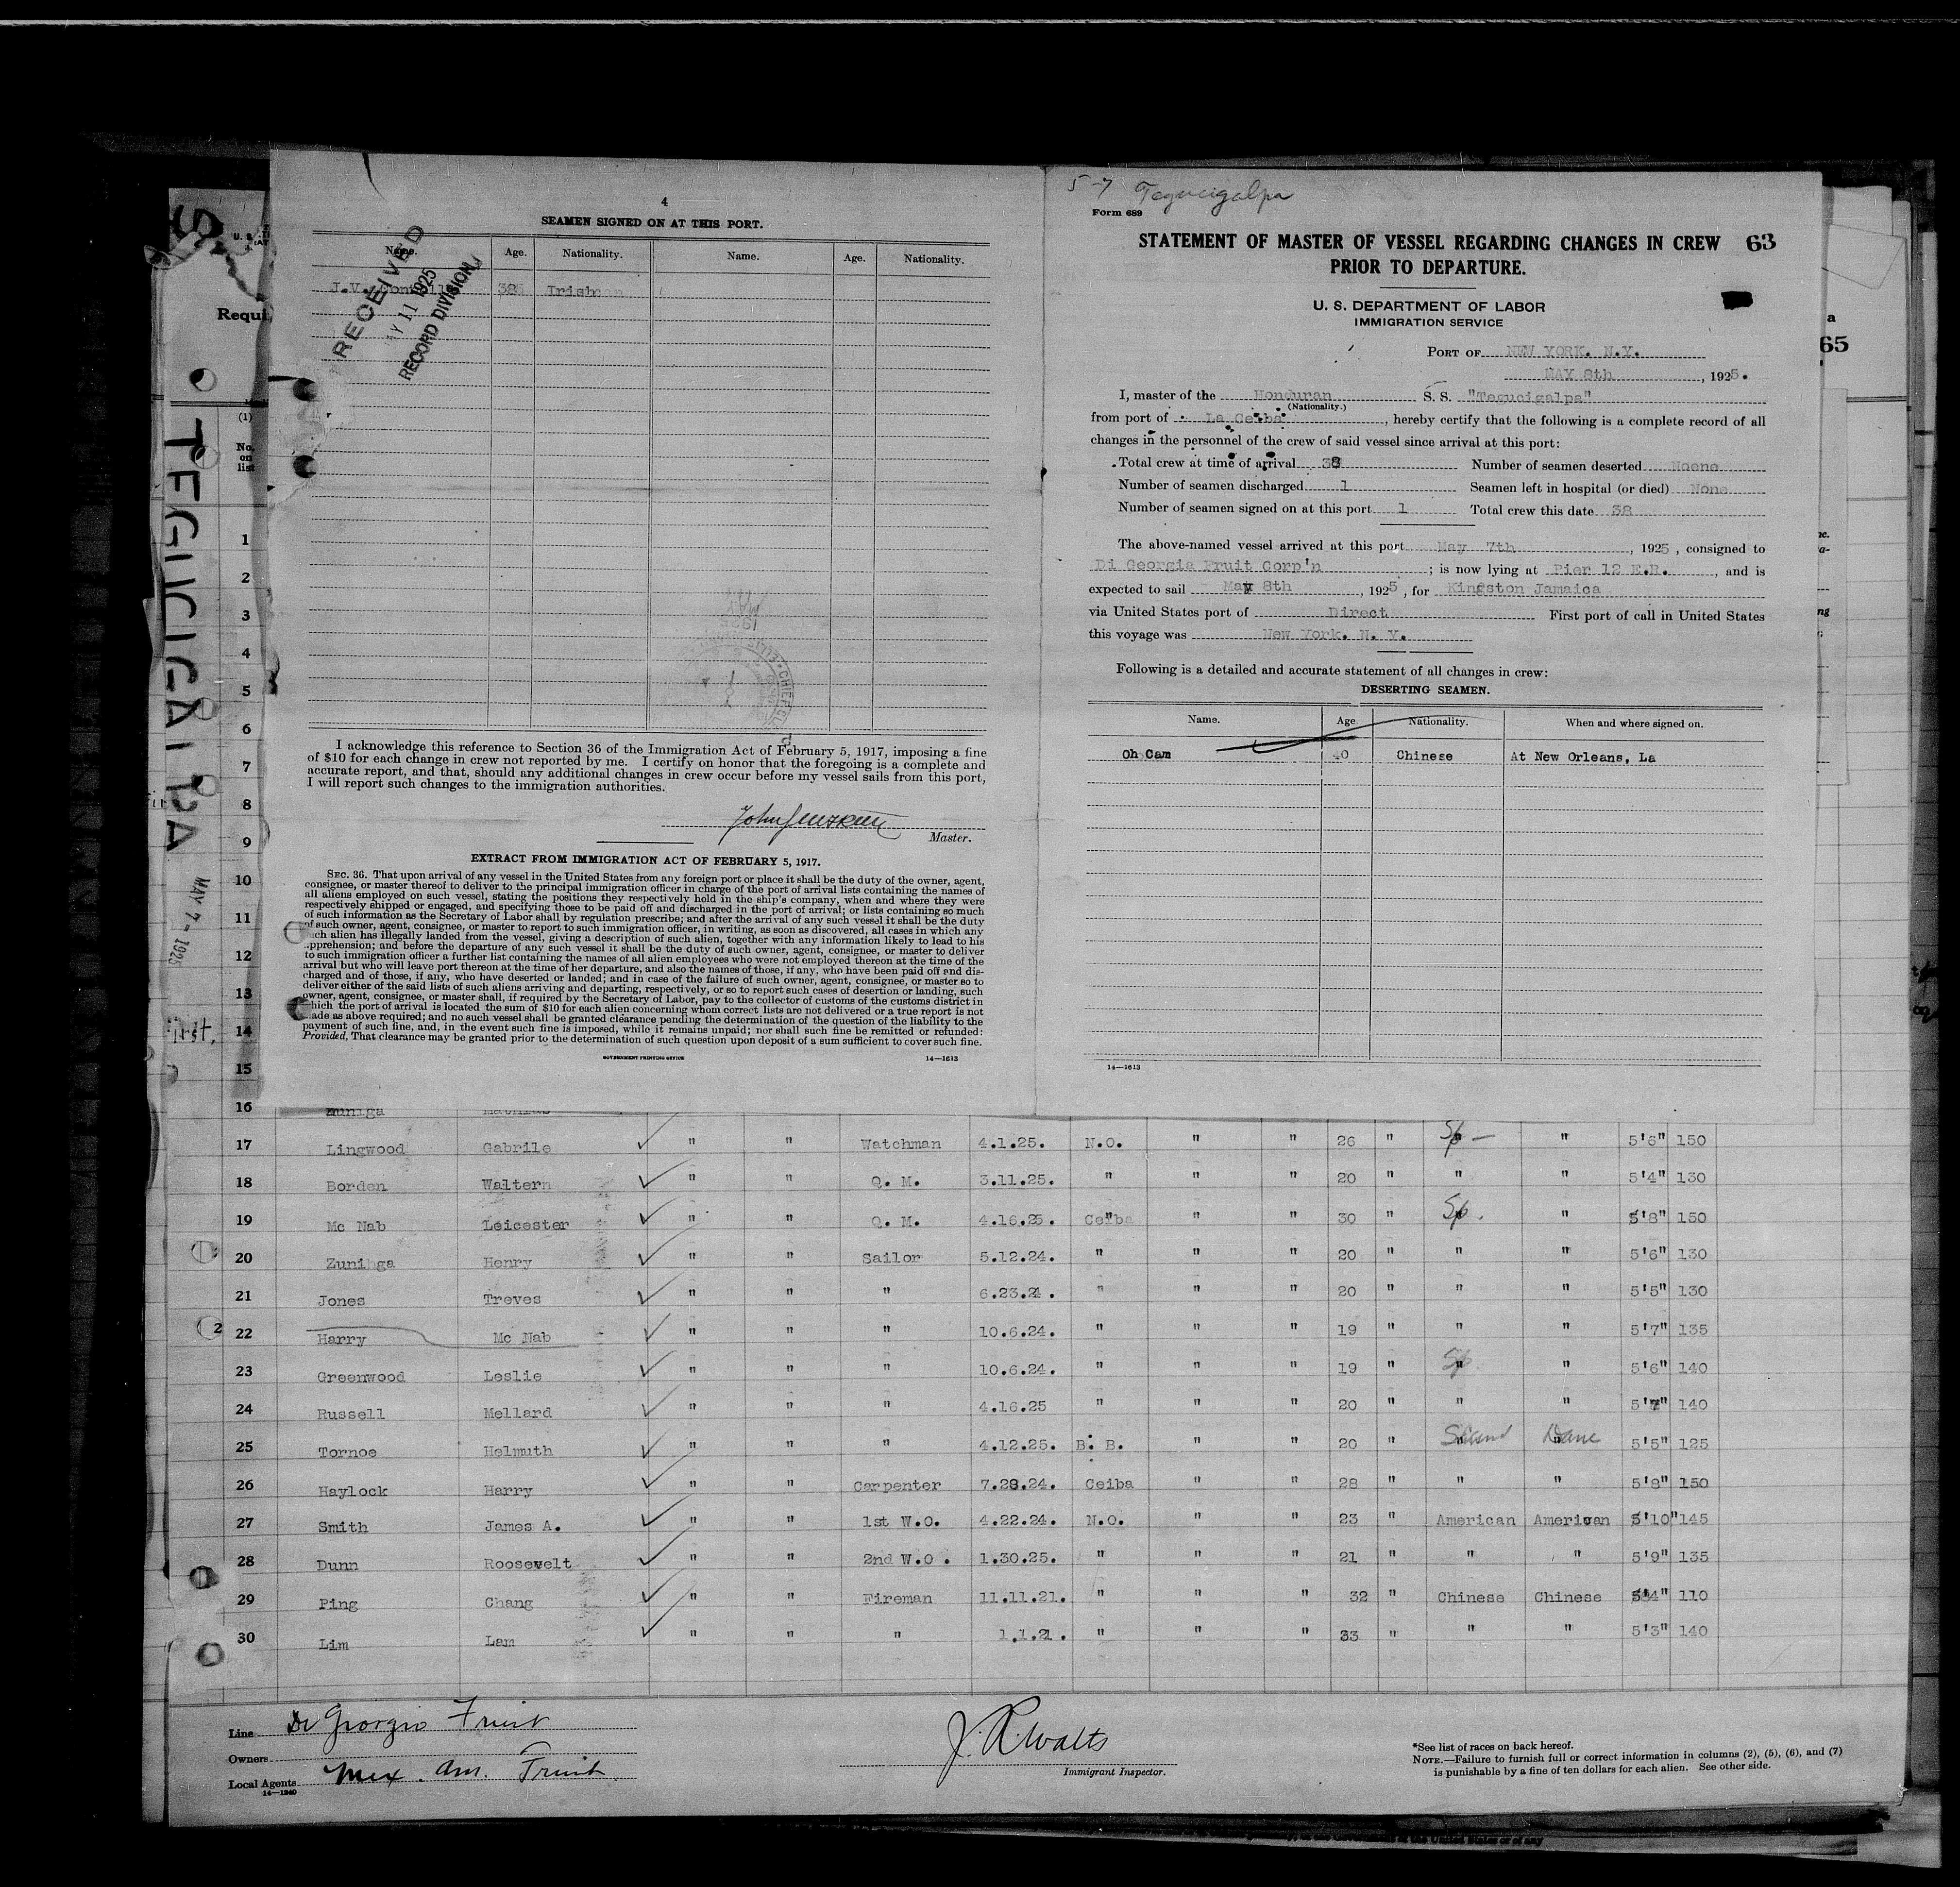 4
SEAMEN SIGNED ON AT THIS PORT.
Name. Age. Nationality. Name. Age. Nationality.
J.V. 38 Irish
RECEIVED
11 1925
RECORD DIVISION
I acknowledge this reference to Section 36 of the Immigration Act of February 5, 1917, imposing a fine
of $10 for each change in crew not reported by me. I certify on honor that the foregoing is a complete and
accurate report, and that, should any additional changes in crew occur before my vessel sails from this port,
I will report such changes to the immigration authorities.
Master.
EXTRACT FROM IMMIGRATION ACT OF FEBRUARY 5, 1917.
SEC. 36. That upon arrival of any vessel in the United States from any foreign port or place it shall be the duty of the owner, agent,
consignee, or master thereof to deliver to the principal immigration officer in charge of the port of arrival lists containing the names of
all aliens employed on such vessel, stating the positions they respectively hold in the ship's company, when and where they were
respectively shipped or engaged, and specifying those to be paid off and discharged in the port of arrival; or lists containing so much
of such information as the Secretary of Labor shall by regulation prescribe; and after the arrival of any such vessel it shall be the duty
of such owner, agent, consignee, or master to report to such immigration officer, in writing, as soon as discovered, all cases in which any
such alien has illegally landed from the vessel, giving a description of such alien, together with any information likely to lead to his
apprehension; and before the departure of any such vessel it shall be the duty of such owner, agent, consignee, or master to deliver
to such immigration officer a further list containing the names of all alien employees who were not employed thereon at the time of the
arrival but who will leave port thereon at the time of her departure, and also the names of those, if any, who have been paid off and dis-
charged and of those, if any, who have deserted or landed; and in case of the failure of such owner, agent, consignee, or master so to
deliver either of the said lists of such aliens arriving and departing, respectively, or so to report such cases of desertion or landing, such
owner, agent, consignee, or master shall, if required by the Secretary of Labor, pay to the collector of customs of the customs district in
which the port of arrival is located the sum of $10 for each alien concerning whom correct lists are not delivered or a true report is not
made as above required; and no such vessel shall be granted clearance pending the determination of the question of the liability to the
payment of such fine, and, in the event such fine is imposed, while it remains unpaid; nor shall such fine be remitted or refunded:
Provided, That clearance may be granted prior to the determination of such question upon deposit of a sum sufficient to cover such fine.
GOVERNMENT PRINTING OFFICE 14—1613
5-7 Tegucigalpa
Form 689
STATEMENT OF MASTER OF VESSEL REGARDING CHANGES IN CREW 63
PRIOR TO DEPARTURE.
U. S. DEPARTMENT OF LABOR
IMMIGRATION SERVICE
PORT OF NEW YORK. N.Y.
MAY 8th, 1925.
I, master of the Honduran S. S. "Tegucigalpa"
(Nationality.)
from port of La Ceiba, hereby certify that the following is a complete record of all
changes in the personnel of the crew of said vessel since arrival at this port:
Total crew at time of arrival 38 Number of seamen deserted Noone
Number of seamen discharged 1 Seamen left in hospital (or died) None
Number of seamen signed on at this port 1 Total crew this date 38
The above-named vessel arrived at this port May 7th, 1925, consigned to
Di Georgia Fruit Corp'n; is now lying at Pier 12 E.R., and is
expected to sail May 8th, 1925, for Kingston Jamaica
via United States port of Direct First port of call in United States
this voyage was New York. N. Y.
Following is a detailed and accurate statement of all changes in crew:
DESERTING SEAMEN.
Name. Age Nationality. When and where signed on.
Oh Cam 40 Chinese At New Orleans, La
14—1613
U. S.
Requi
a
65
TEGUCIGALPA
MAY 7 - 1925
First,
(1)
No.
on
list
1
2
3
4
5
6
7
8
9
10
11
12
13
14
15
16 Zuniga
17 Lingwood Gabrile " " Watchman 4.1.25. N.O. " " 26 " Sp — " 5'6" 150
18 Borden Waltern " " Q. M. 3.11.25. " " " 20 " " " 5'4" 130
19 Mc Nab Leicester " " Q. M. 4.16.25. Ceiba " " 30 " Sp. " 5'8" 150
20 Zuninga Henry " " Sailor 5.12.24. " " " 20 " " " 5'6" 130
21 Jones Treves " " " 6.23.24. " " " 20 " " " 5'5" 130
22 Harry Mc Nab " " " 10.6.24. " " " 19 " " " 5'7" 135
23 Greenwood Leslie " " " 10.6.24. " " " 19 " Sp " 5'6" 140
24 Russell Mellard " " " 4.16.25 " " " 20 " " " 5'7" 140
25 Tornoe Helmuth " " " 4.12.25. B. B. " " 20 " Scand Dane 5'5" 125
26 Haylock Harry " " Carpenter 7.28.24. Ceiba " " 28 " " " 5'8" 150
27 Smith James A. " " 1st W.O. 4.22.24. N.O. " " 23 " American American 5'10" 145
28 Dunn Roosevelt " " 2nd W.O. 1.30.25. " " " 21 " " " 5'9" 135
29 Ping Chang " " Fireman 11.11.21. " " " 32 " Chinese Chinese 5'4" 110
30 Lim Lam " " " 1.1.21. " " " 33 " " " 5'3" 140
Line Di Giorgio Fruit
Owners
Local Agents Mex. Am. Fruit
14—1240
J. R. Walts
Immigrant Inspector.
*See list of races on back hereof.
NOTE.—Failure to furnish full or correct information in columns (2), (5), (6), and (7)
is punishable by a fine of ten dollars for each alien. See other side.